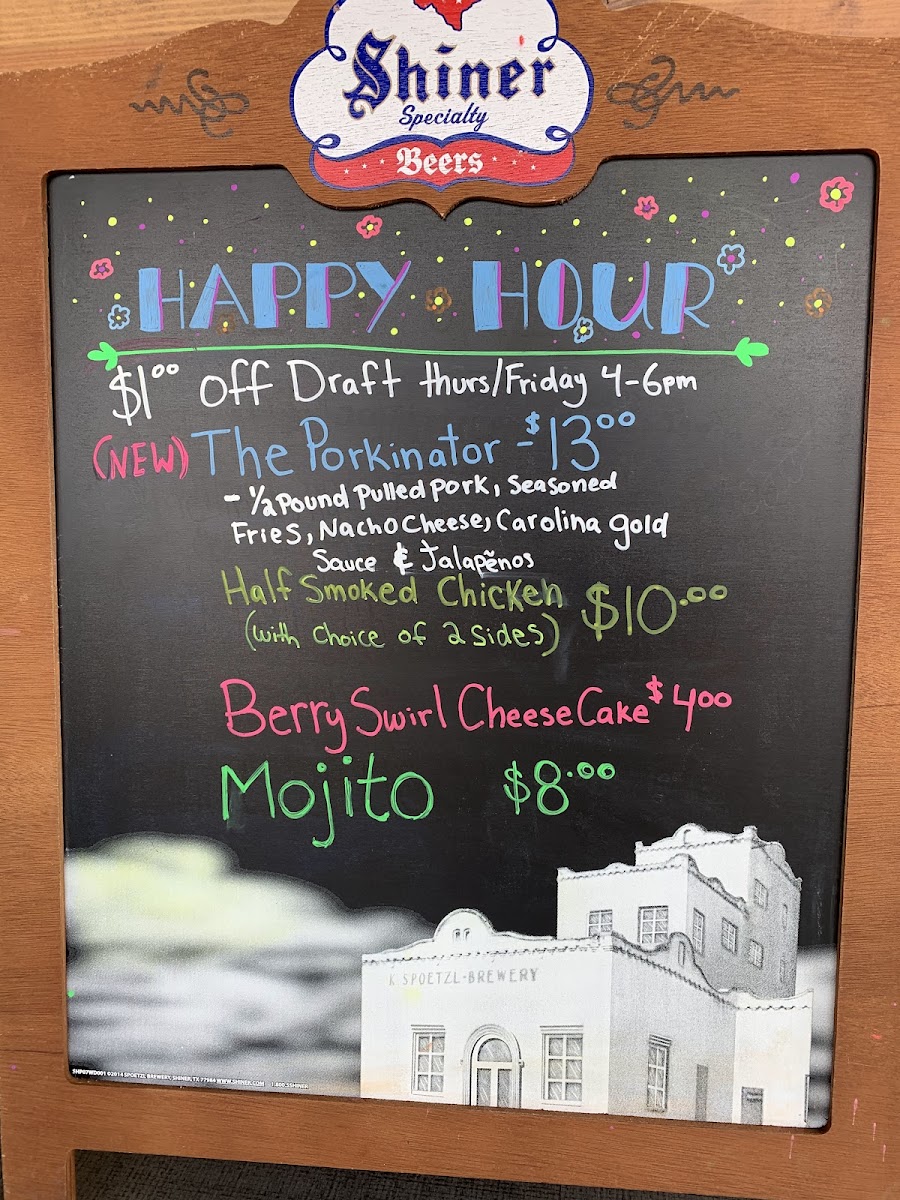 Shiner
Specialty
Beers
HAPPY HOUR
$100 off Draft thurs/Friday 4-6pm
(NEW) The Porkinator - $1300
- 1/2 Pound Pulled Pork, Seasoned
Fries, Nacho Cheese, Carolina gold
Sauce & Jalapeños
Half Smoked Chicken $10.00
(with choice of 2 sides)
Berry Swirl CheeseCake $400
Mojito $8.00
K SPOETZL-BREWERY
SHP07WD001 ©2014 SPOETZL BREWERY, SHINER, TX 77984 WWW.SHINER.COM 1.800.5SHINER